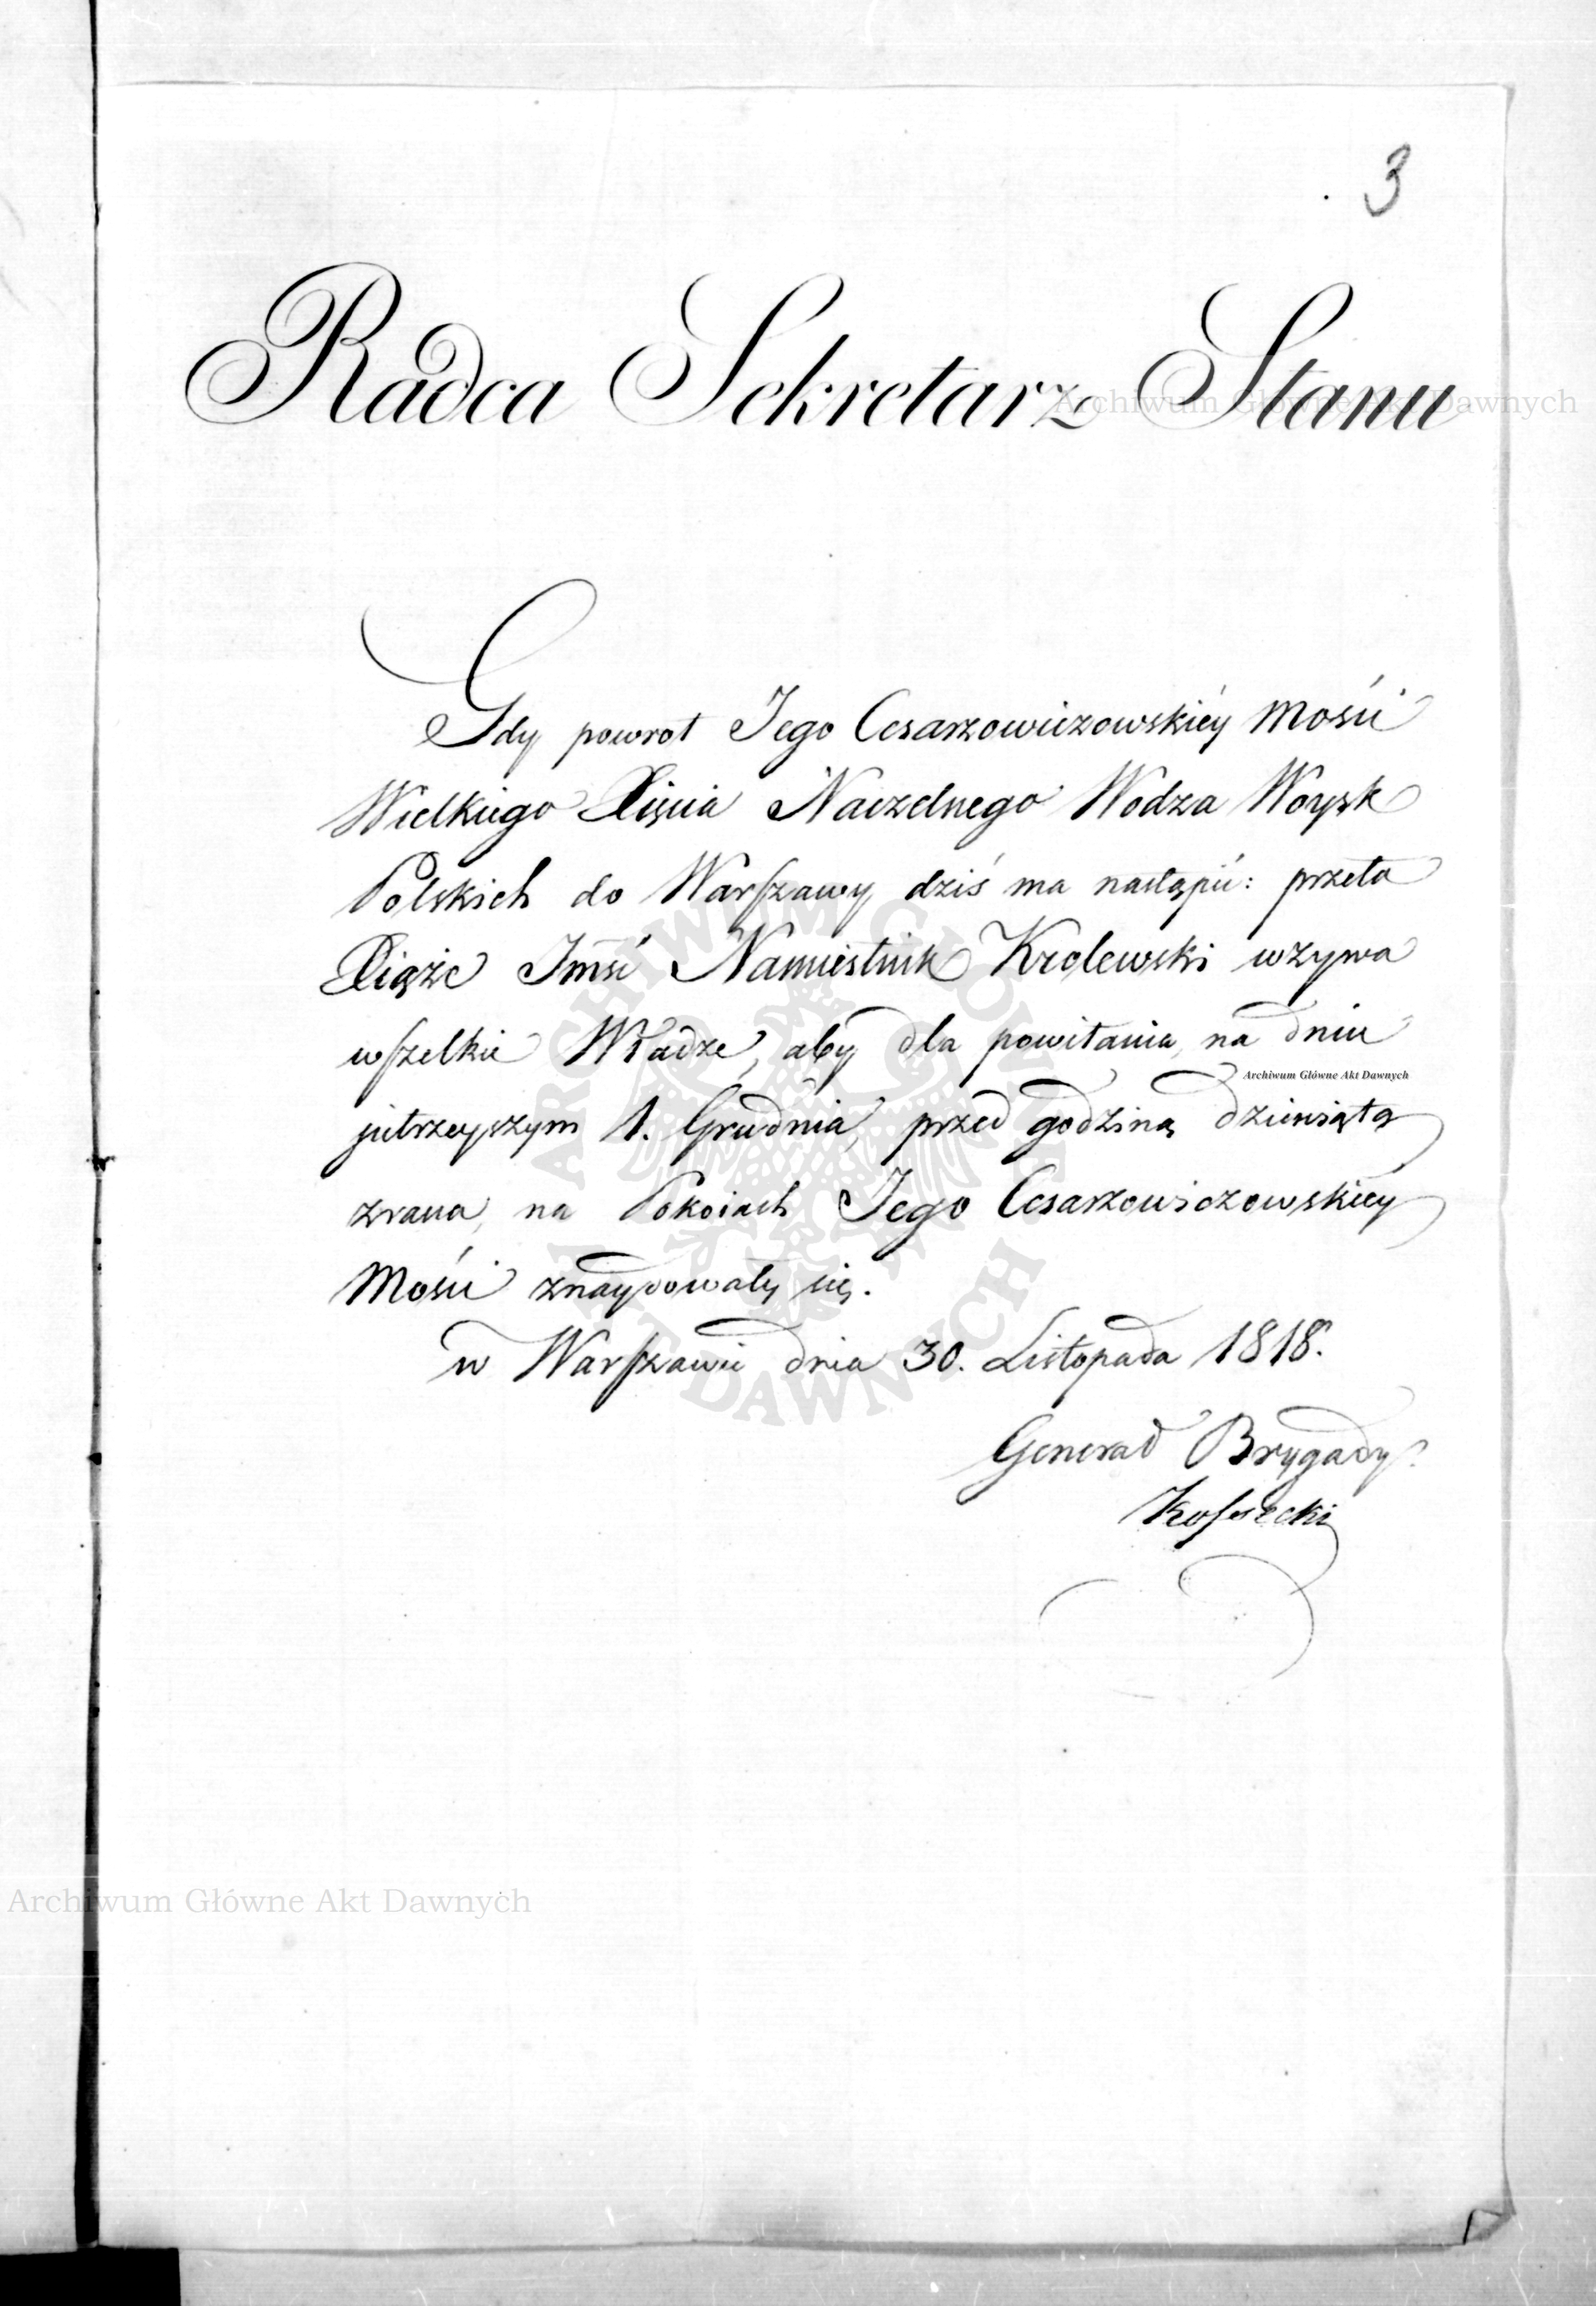 3
Radca Sekretarz Stanu
Gdy powrot Jego Cesarzowiczowskiéy Mości
Wielkiego Xięcia Naczelnego Wodza Woysk
Polskich do Warſzawy dziś ma nastąpić: przeto
Xiąże Jmść Namiestnik Krolewski wzywa
wſzelkie Władze, aby dla powitania, na dniu
jutrzeyszym 1. Grudnia, przed godziną dziesiątą
zrana, na Pokoiach Jego Cesarzowiczowskiéy
Mości znaydowały się.
w Warſzawie dnia 30. Listopada 1818.
Generał Brygady
Koſsecki
Archiwum Główne Akt Dawnych
Archiwum Główne Akt Dawnych
Archiwum Główne Akt Dawnych
ARCHIWUM GŁÓWNE AKT DAWNYCH